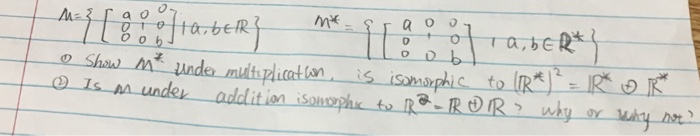 M={ [ a 0 0 / 0 1 0 / 0 0 b ] | a,b∈ℝ }    M*= { [ a 0 0 / 0 1 0 / 0 0 b ] | a,b∈ℝ* }
① Show M* under multiplication, is isomorphic to (ℝ*)² = ℝ* ⊕ ℝ*
② Is M under addition isomorphic to ℝ² = ℝ⊕ℝ? why or why not?